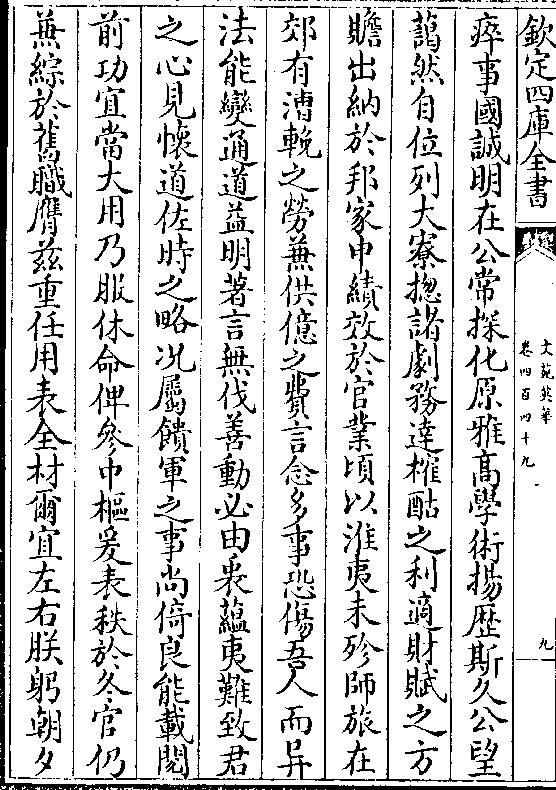 欽定四庫全書
文苑英華
卷四百四十九
九
瘁事國誠明在公常探化原雅高學術揚歴斯久公望
藹然自位列大寮揔諸劇務達榷酤之利適財賦之方
贍出納於邦家申績效於官業頃以淮夷未殄師旅在
郊有漕輓之勞無供億之費言念多事恐傷吾人而异
法能變通道益明著言無伐善動必由衷藴夷難致君
之心見懷道佐時之略况屬饋軍之事尚倚良能載閱
前功宜當大用乃服休命俾參中樞爰表秩於冬官仍
兼綜於舊職膺兹重任用表全材爾宜左右朕躬朝夕